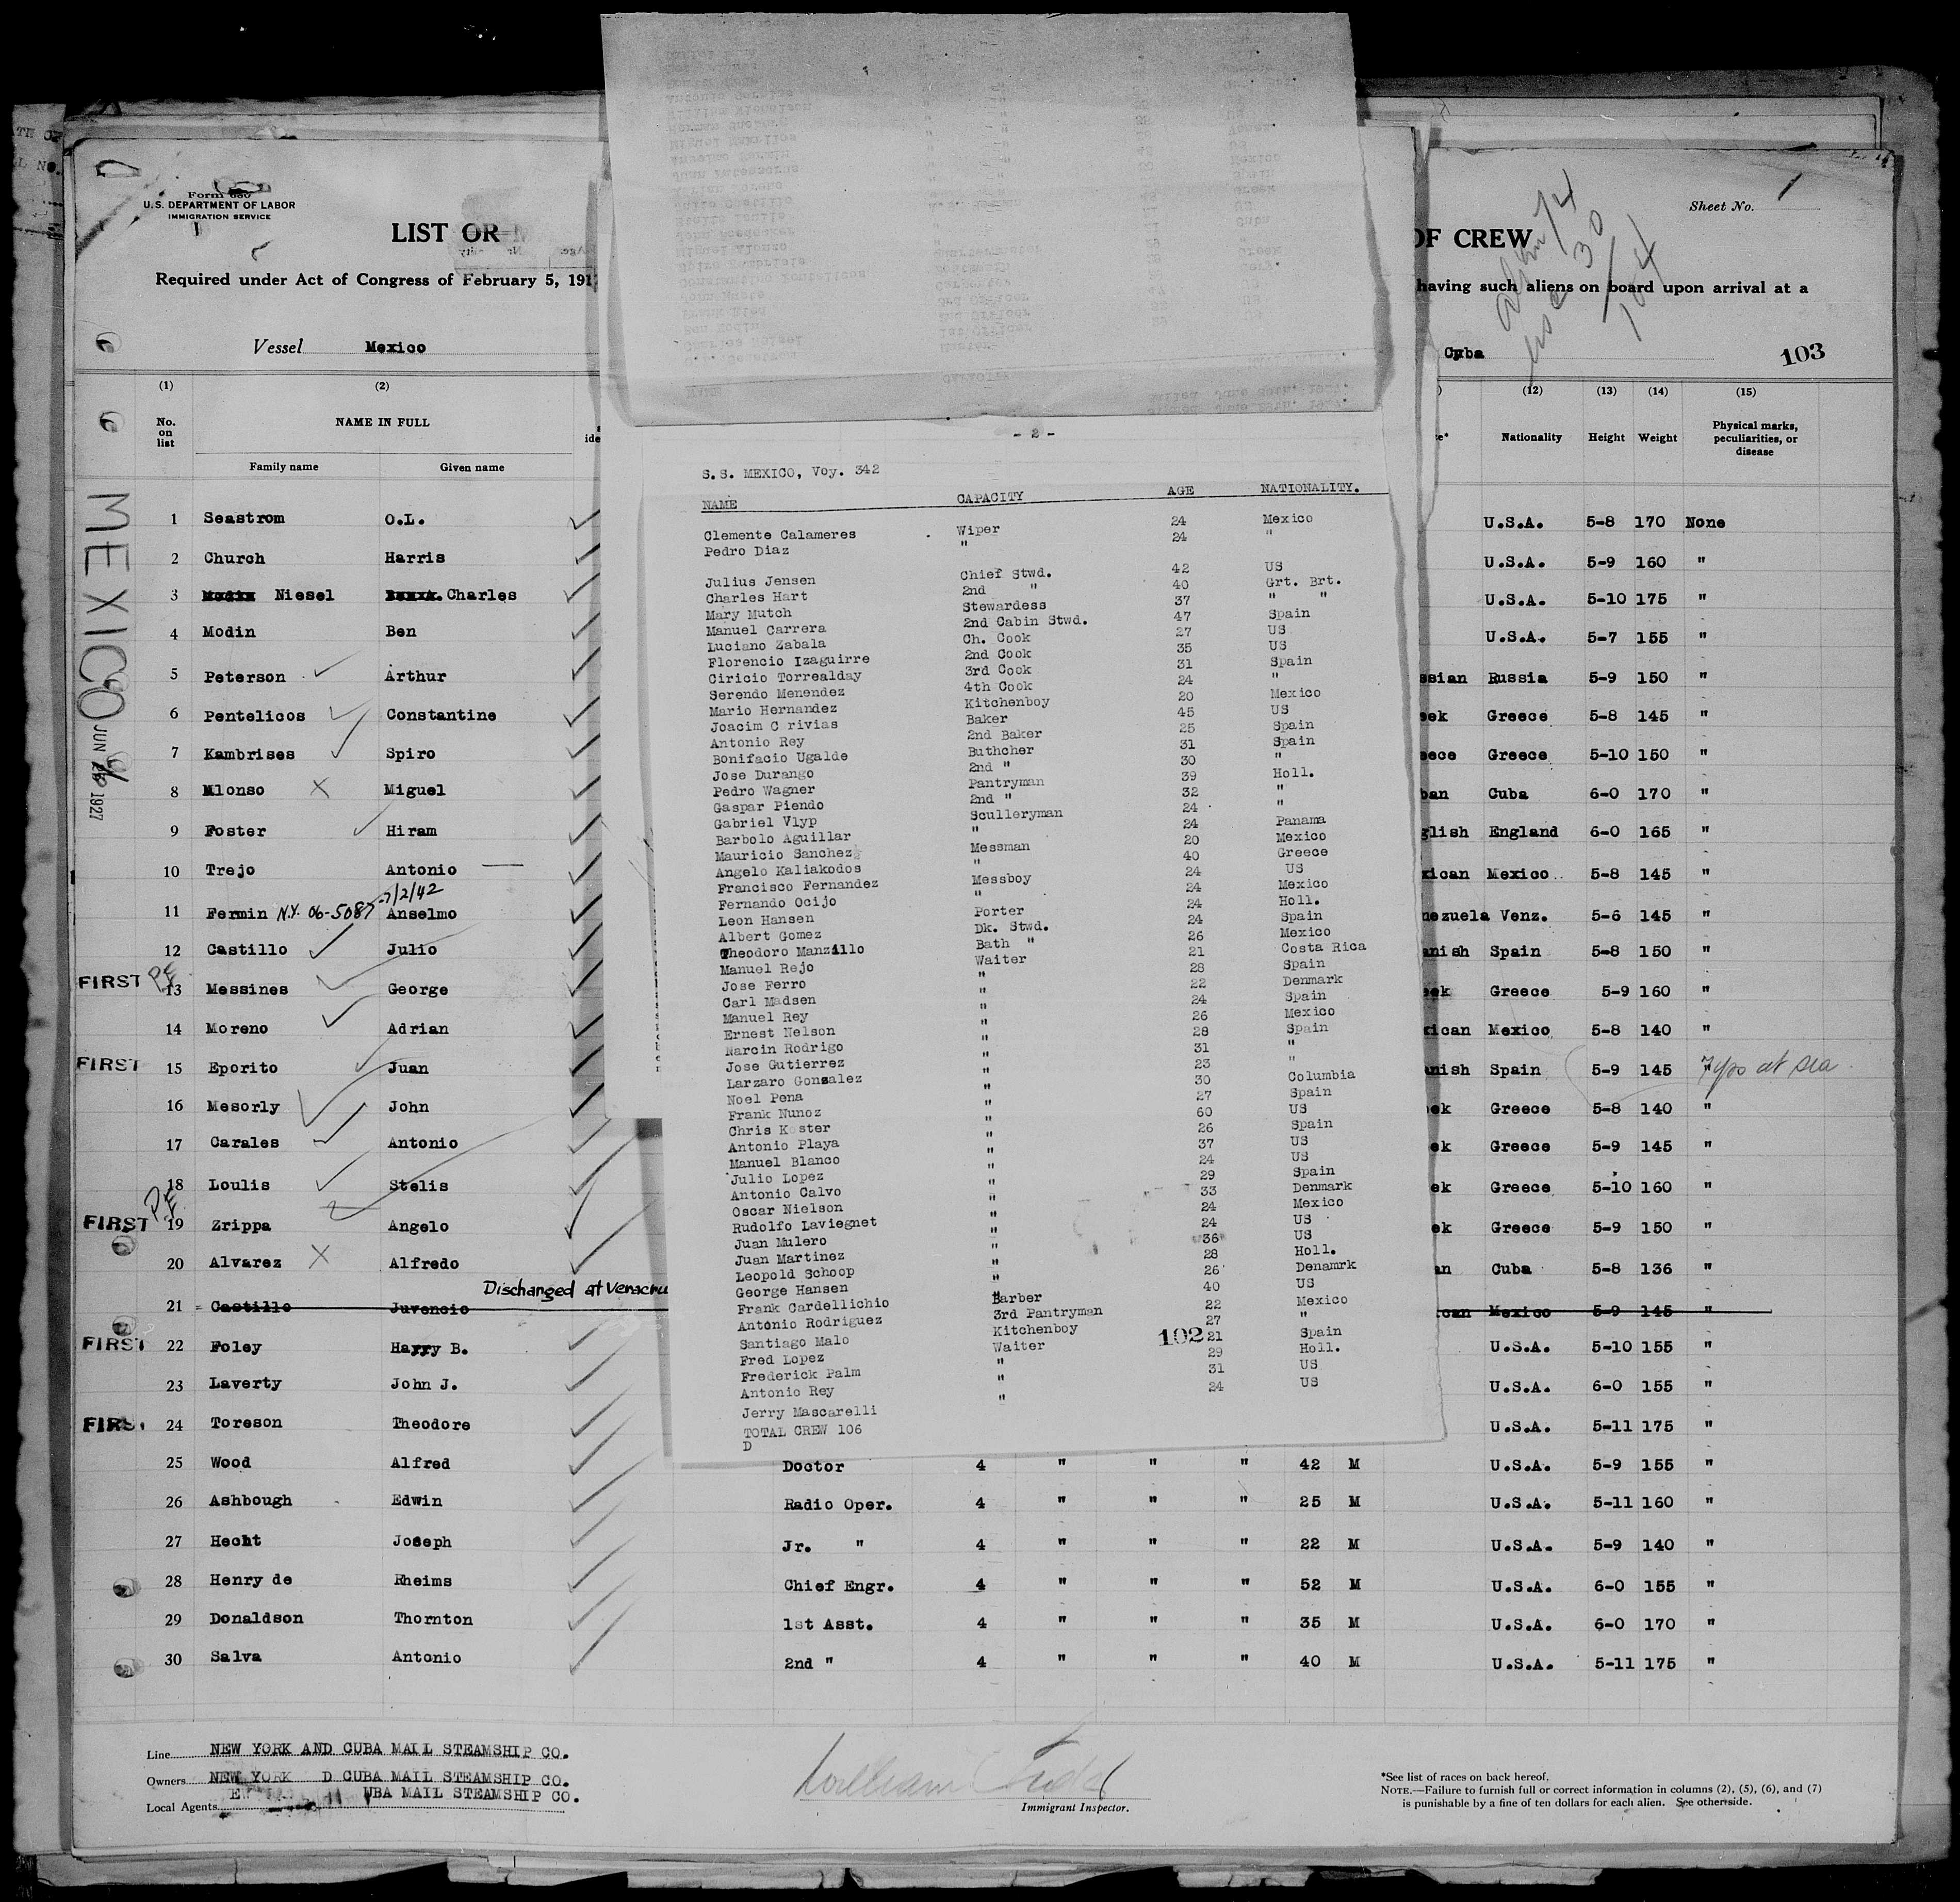 Form 680
U.S. DEPARTMENT OF LABOR
IMMIGRATION SERVICE
LIST OR
OF CREW
Sheet No. 1
Required under Act of Congress of February 5, 191
having such aliens on board upon arrival at a
Vessel Mexico
Cuba
103
(1) (2) (12) (13) (14) (15)
No. on list
NAME IN FULL
Family name Given name
Nationality Height Weight Physical marks, peculiarities, or disease
MEXICO
JUN 1927
1 Seastrom O.L. U.S.A. 5-8 170 None
2 Church Harris U.S.A. 5-9 160 "
3 Niesel Charles U.S.A. 5-10 175 "
4 Modin Ben U.S.A. 5-7 155 "
5 Peterson Arthur ssian Russia 5-9 150 "
6 Pentelicos Constantine ek Greece 5-8 145 "
7 Kambrises Spiro eece Greece 5-10 150 "
8 Alonso X Miguel ban Cuba 6-0 170 "
9 Foster Hiram glish England 6-0 165 "
10 Trejo Antonio xican Mexico 5-8 145 "
11 Fermin N.Y. 06-5087-7/2/42 Anselmo nezuela Venz. 5-6 145 "
12 Castillo Julio anish Spain 5-8 150 "
FIRST P.F. 13 Messines George ek Greece 5-9 160 "
14 Moreno Adrian xican Mexico 5-8 140 "
FIRST 15 Eporito Juan anish Spain 5-9 145 " 7 yrs at sea
16 Mesorly John ek Greece 5-8 140 "
17 Carales Antonio ek Greece 5-9 145 "
18 Loulis Stelis ek Greece 5-10 160 "
FIRST P.F. 19 Zrippa Angelo ek Greece 5-9 150 "
20 Alvarez X Alfredo an Cuba 5-8 136 "
Discharged at Veracru
21 Castillo Juvencio ican Mexico 5-9 145 "
FIRST 22 Foley Harry B. U.S.A. 5-10 155 "
23 Laverty John J. U.S.A. 6-0 155 "
FIRST 24 Toreson Theodore U.S.A. 5-11 175 "
25 Wood Alfred Doctor 4 " " " 42 M U.S.A. 5-9 155 "
26 Ashbough Edwin Radio Oper. 4 " " " 25 M U.S.A. 5-11 160 "
27 Hecht Joseph Jr. " 4 " " " 22 M U.S.A. 5-9 140 "
28 Henry de Rheims Chief Engr. 4 " " " 52 M U.S.A. 6-0 155 "
29 Donaldson Thornton 1st Asst. 4 " " " 35 M U.S.A. 6-0 170 "
30 Salva Antonio 2nd " 4 " " " 40 M U.S.A. 5-11 175 "
- 2 -
S.S. MEXICO, Voy. 342
NAME CAPACITY AGE NATIONALITY.
Clemente Calameres Wiper 24 Mexico
Pedro Diaz " 24 "
Julius Jensen Chief Stwd. 42 US
Charles Hart 2nd " 40 Grt. Brt.
Mary Mutch Stewardess 37 " "
Manuel Carrera 2nd Cabin Stwd. 47 Spain
Luciano Zabala Ch. Cook 27 US
Florencio Izaguirre 2nd Cook 35 US
Ciricio Torrealday 3rd Cook 31 Spain
Serendo Menendez 4th Cook 24 "
Mario Hernandez Kitchenboy 20 Mexico
Joacim C rivias Baker 45 US
Antonio Rey 2nd Baker 25 Spain
Bonifacio Ugalde Buthcher 31 Spain
Jose Durango 2nd " 30 "
Pedro Wagner Pantryman 39 Holl.
Gaspar Piendo 2nd " 32 "
Gabriel Vlyp Sculleryman 24 "
Barbolo Aguillar " 24 Panama
Mauricio Sanchez Messman 20 Mexico
Angelo Kaliakodos " 40 Greece
Francisco Fernandez Messboy 24 US
Fernando Ocijo " 24 Mexico
Leon Hansen Porter 24 Holl.
Albert Gomez Dk. Stwd. 24 Spain
Theodoro Manzillo Bath " 26 Mexico
Manuel Rejo Waiter 21 Costa Rica
Jose Ferro " 28 Spain
Carl Madsen " 22 Denmark
Manuel Rey " 24 Spain
Ernest Nelson " 26 Mexico
Narcin Rodrigo " 28 Spain
Jose Gutierrez " 31 "
Larzaro Gonzalez " 23 "
Noel Pena " 30 Columbia
Frank Nunoz " 27 Spain
Chris K ster " 60 US
Antonio Playa " 26 Spain
Manuel Blanco " 37 US
Julio Lopez " 24 US
Antonio Calvo " 29 Spain
Oscar Nielson " 33 Denmark
Rudolfo Laviegnet " 24 Mexico
Juan Mulero " 24 US
Juan Martinez " 36 US
Leopold Schoop " 28 Holl.
George Hansen " 26 Denamrk
Frank Cardellichio Barber 40 US
Antonio Rodriguez 3rd Pantryman 22 Mexico
Santiago Malo Kitchenboy 27 "
Fred Lopez Waiter 21 Spain
Frederick Palm " 29 Holl.
Antonio Rey " 31 US
Jerry Mascarelli " 24 US
102
TOTAL CREW 106
D
Line NEW YORK AND CUBA MAIL STEAMSHIP CO.
Owners NEW YORK D CUBA MAIL STEAMSHIP CO.
Local Agents UBA MAIL STEAMSHIP CO.
William
Immigrant Inspector.
*See list of races on back hereof.
NOTE.—Failure to furnish full or correct information in columns (2), (5), (6), and (7)
is punishable by a fine of ten dollars for each alien. See otherside.